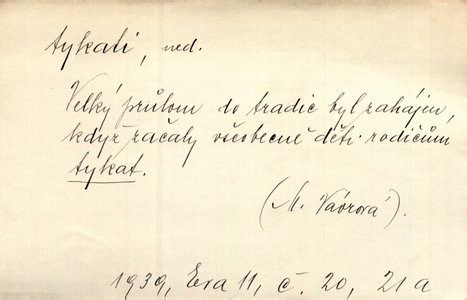 tykati, ned.
Velký průlom do tradic byl zahájen,
když začaly všeobecně děti rodičům
tykat.
(M. Vávrová).
1939, Eva 11, č. 20, 21a